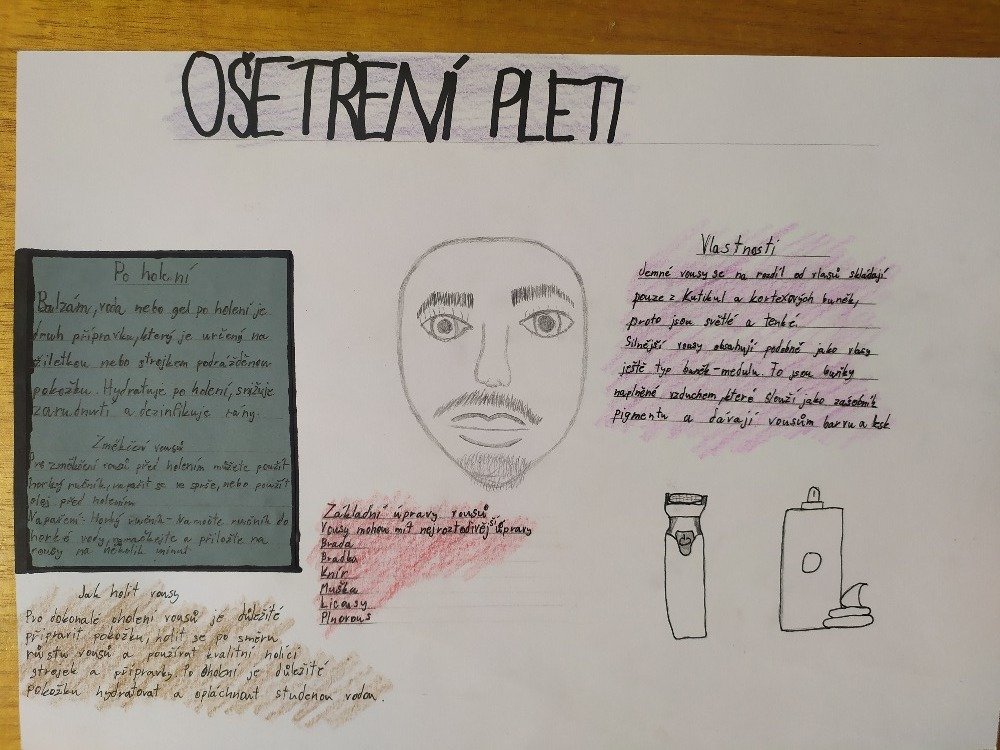 OŠETŘENÍ PLETI
Po holení
Balzám, voda nebo gel po holení je
druh přípravku, který je určený na
žiletkou nebo strojkem podrážděnou
pokožku. Hydratuje po holení, snižuje
zarudnutí a dezinfikuje rány.
Změkčení vousů
Pro změkčení vousů před holením můžete použít
horký ručník, napařit se ve sprše, nebo použít
olej před holením
Napaření: Horký ručník - Namočte ručník do
horké vody, a přiložte na
vousy na několik minut
Jak holit vousy
Pro dokonalé oholení vousů je důležité
připravit pokožku, holit se po směru
růstu vousů a používat kvalitní holicí
strojek a přípravky. Po oholení je důležité
pokožku hydratovat a opláchnout studenou vodou.
Základní úpravy vousů
Vousy mohou mít nejroztodivější úpravy
Brada
Bradka
Knír
Muška
Licousy
Plnovous
Vlastnosti
Jemné vousy se na rozdíl od vlasů skládají
pouze z Kutikul a kortexových buněk,
proto jsou světlé a tenké.
Silnější vousy obsahují podobně jako vlasy
ještě typ buněk - medulu. To jsou buňky
naplněné vzduchem, které slouží jako zásobník
pigmentu a dávají vousům barvu a lesk